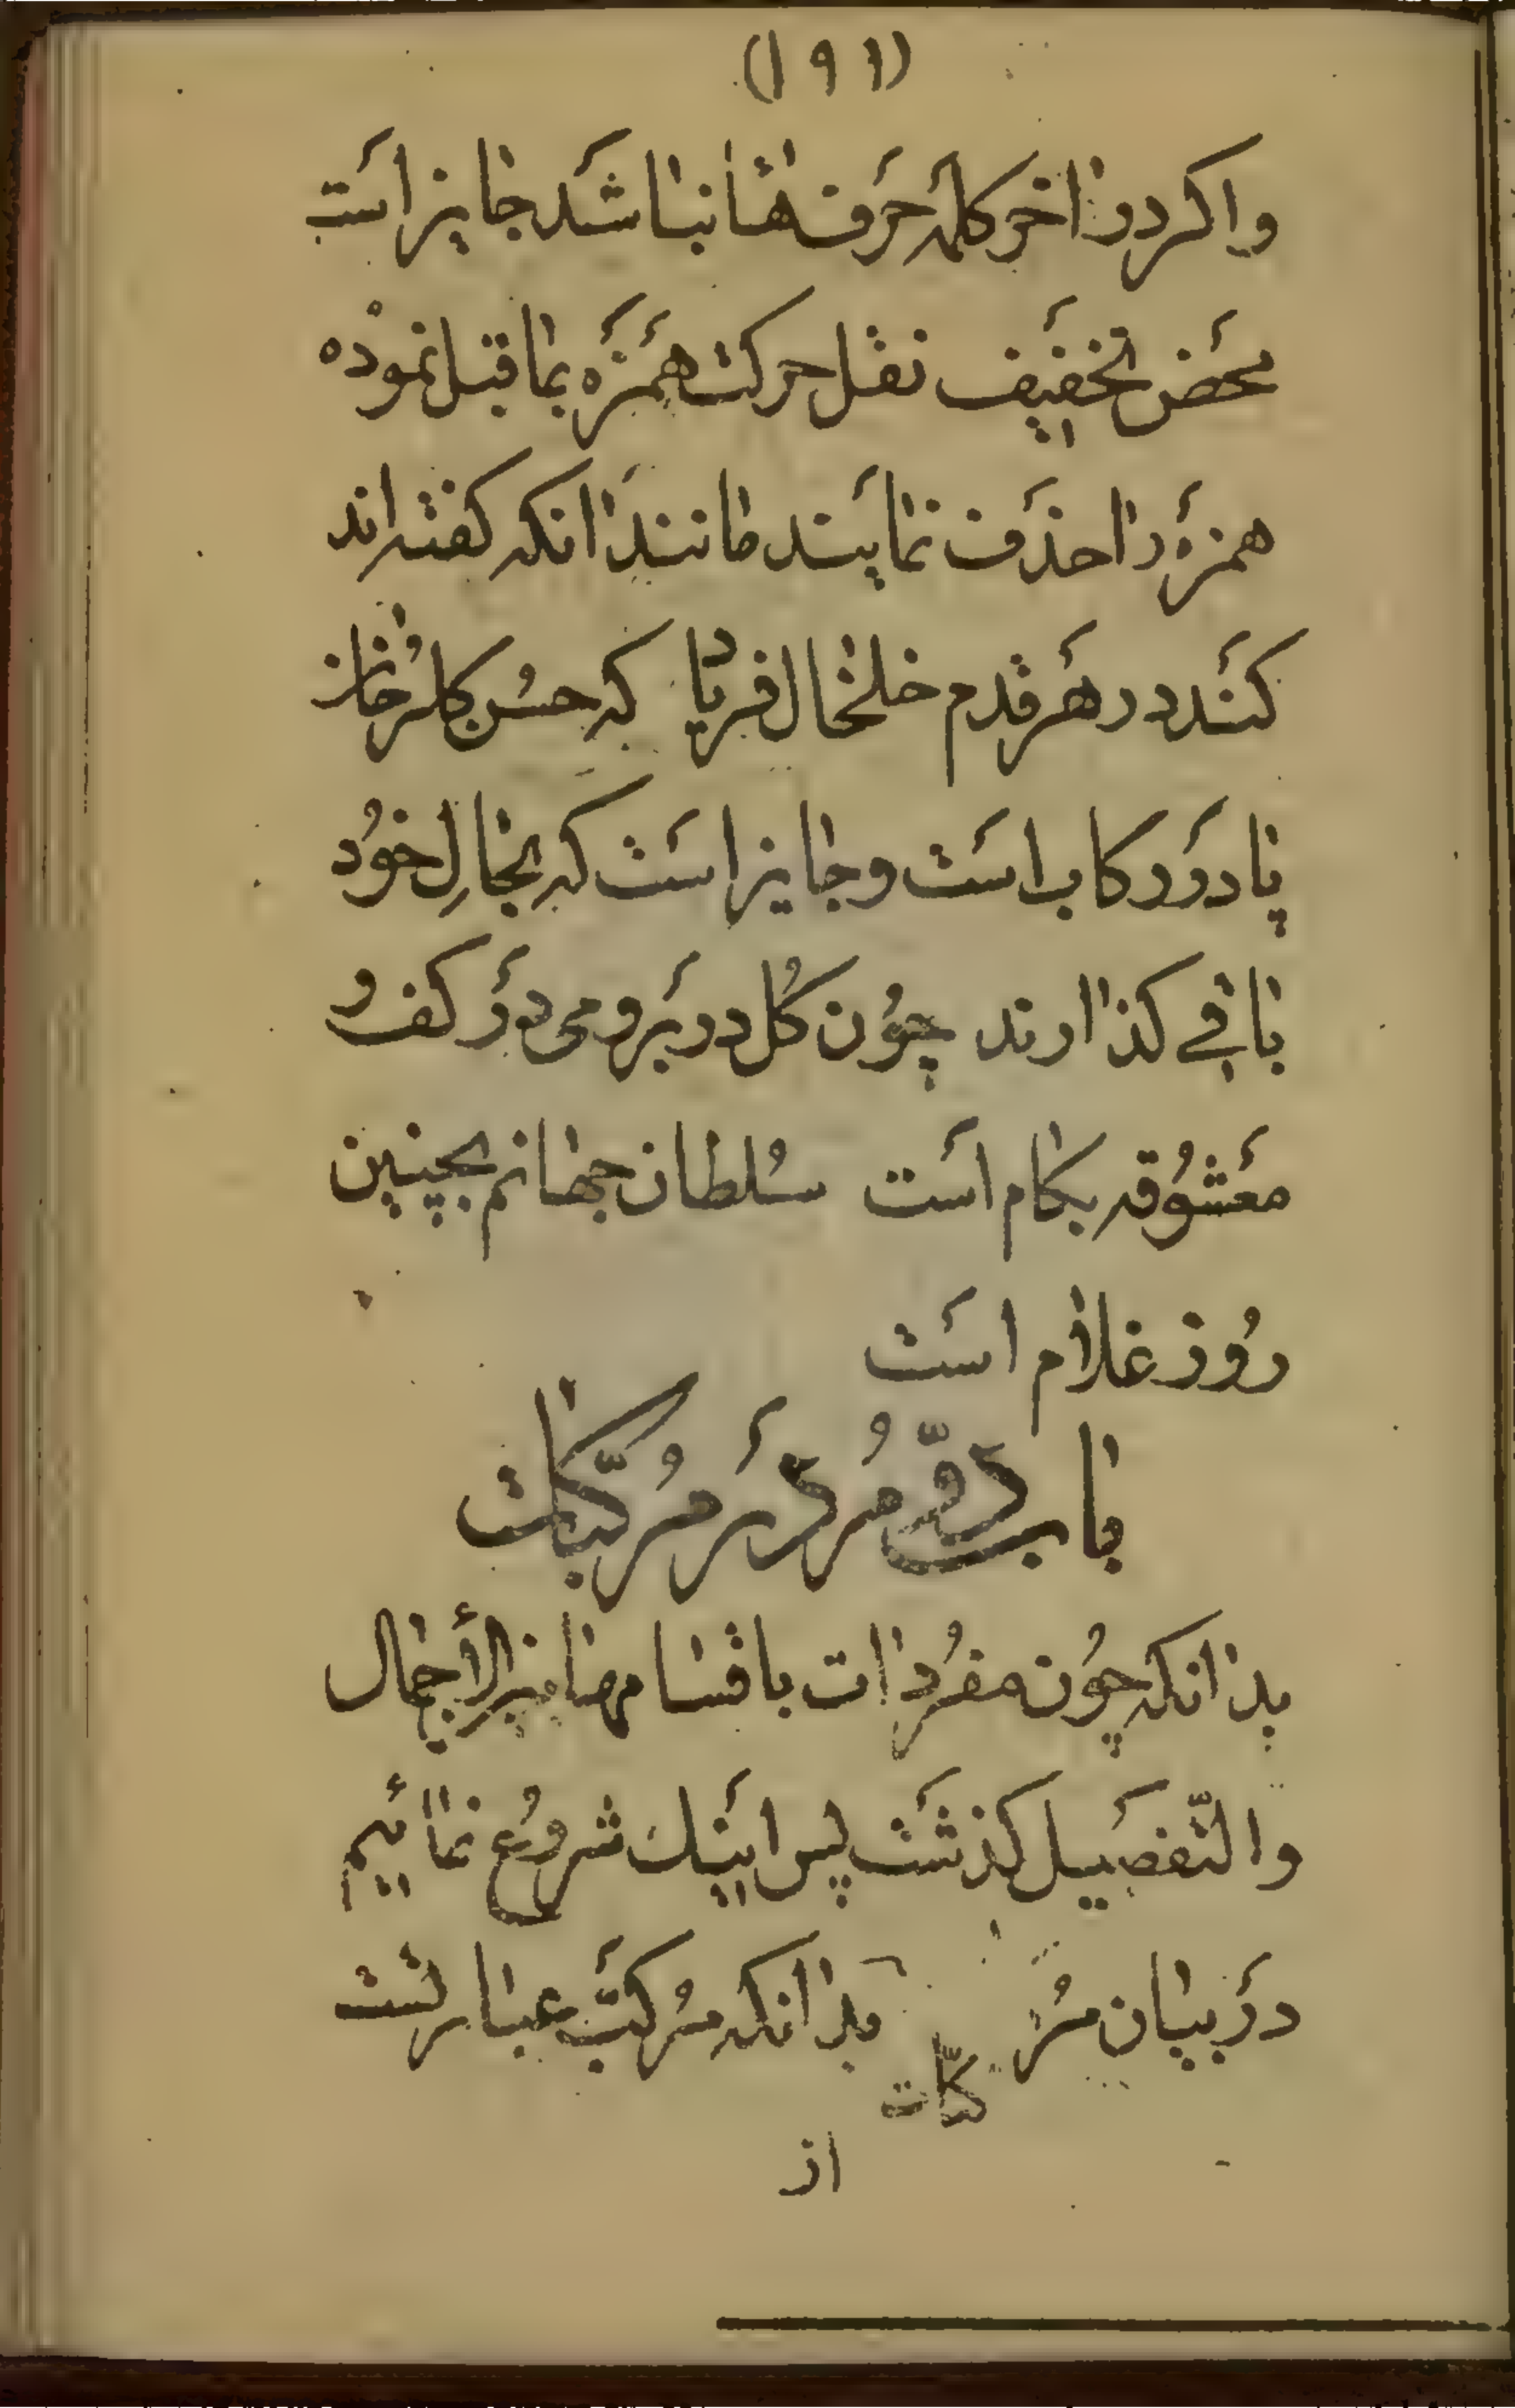 (١٩١)
واکر در اخر کلمه حرف ها نباشد جایز است
محض تخفیف نقل حرکت همزه بما قبل نموده
همزه را حذف نمایند مانند انکه کفته اند
کند در هر قدم خلخال فریاد که حسن کلرخان
پا در رکاب است و جایز است که بحال خود
باقی کذارند چون کل در بر و می در کف و
معشوقه بکام است سلطان جهانم بچنین
روز غلام است
باب دوّم در مرکّبات
بدانکه چون مفردات باقسامها من الأجمال
والتّفصیل کذشت پس اینک شروع نمائیم
در بیان مر کّبات بدانکه مرکّب عبارتست
از